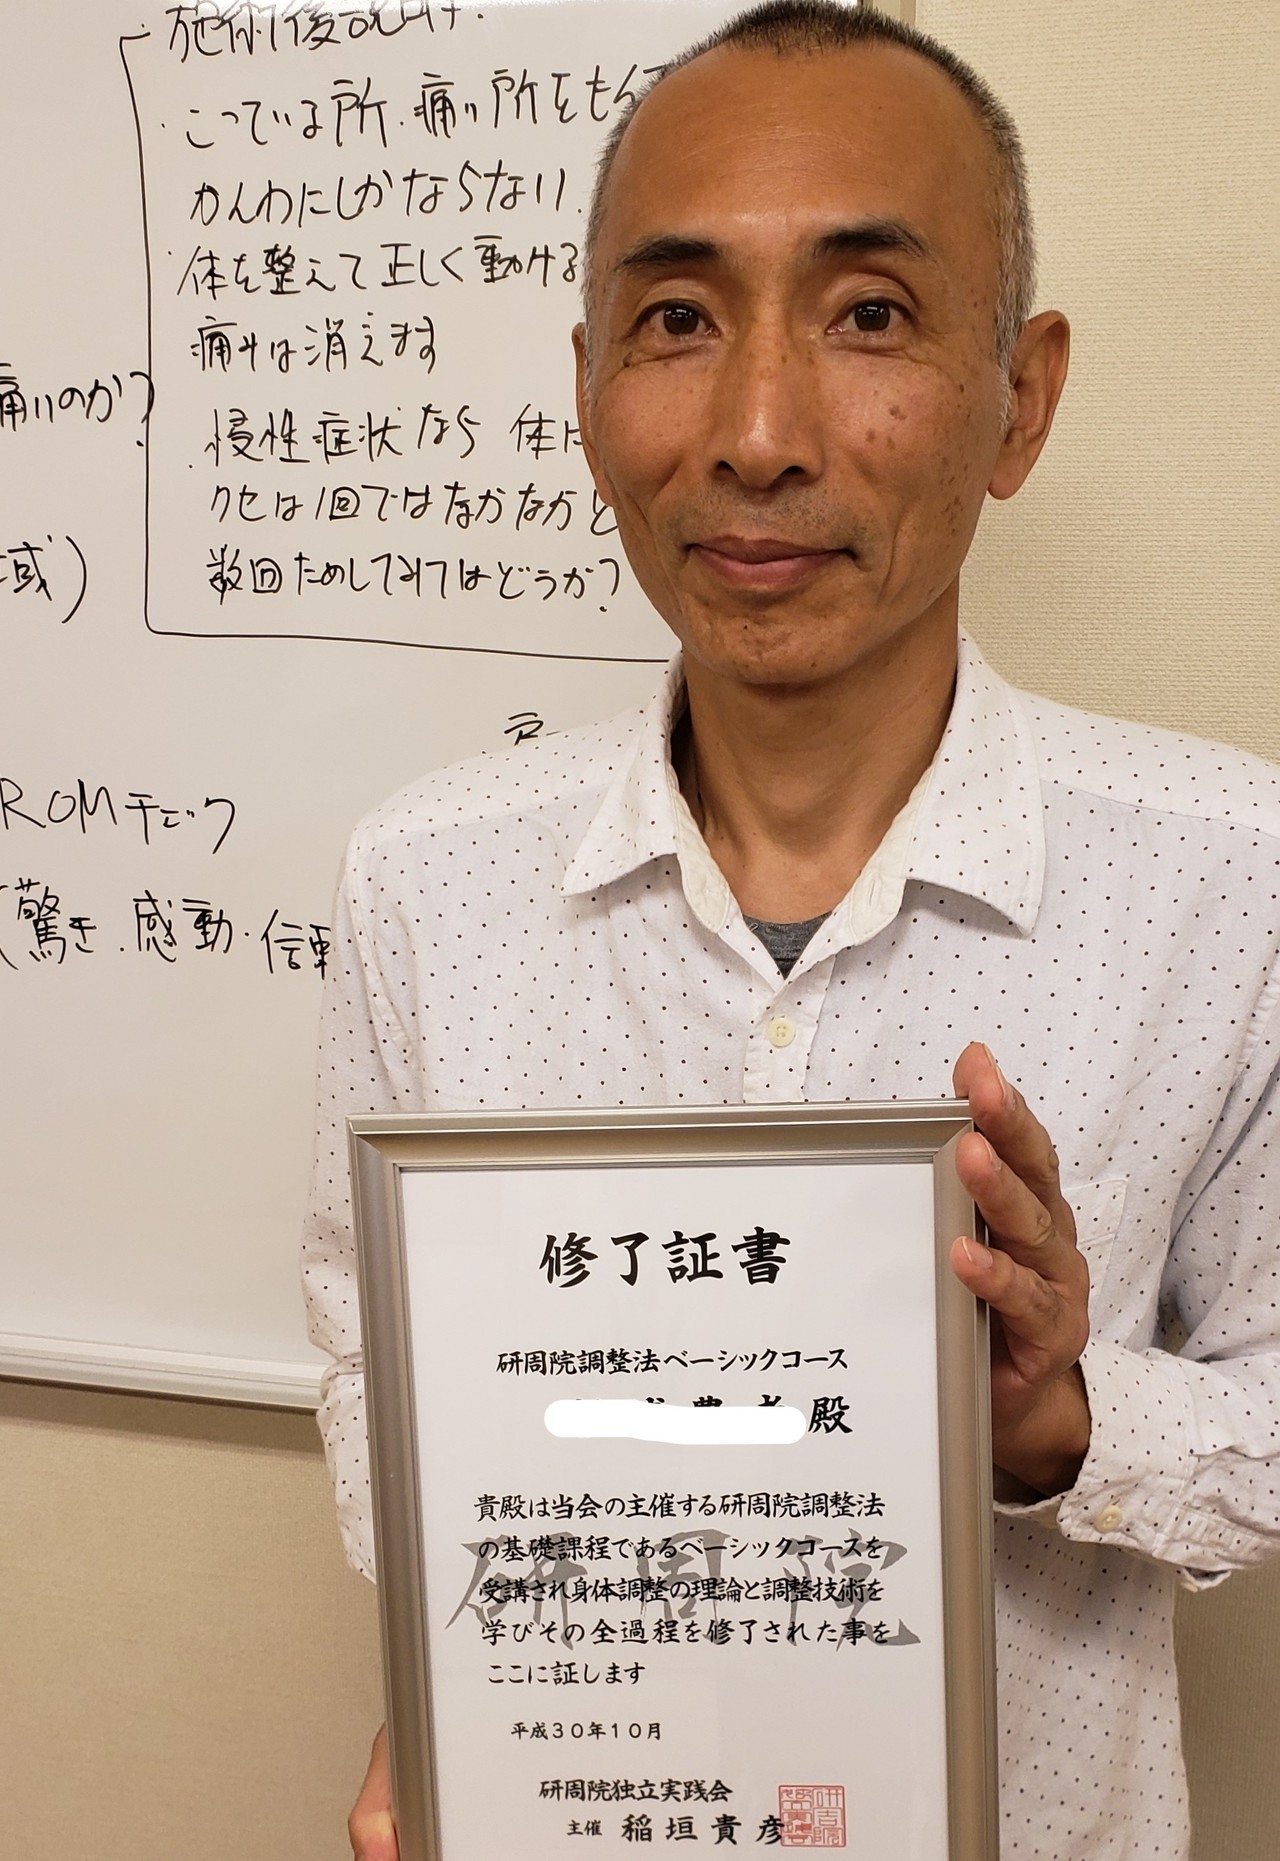 施術後説明
・こっている所、痛い所をも
かんわにしかならない
・体を整えて正しく動ける
痛みは消えます
・慢性症状なら 体に
クセは1回ではなかなかと
数回ためしてみてはどうか?
痛いのか?
域)
ROMチェック
(驚き、感動・信
修了証書
研周院調整法ベーシックコース
殿
貴殿は当会の主催する研周院調整法
の基礎課程であるベーシックコースを
受講され身体調整の理論と調整技術を
学びその全過程を修了された事を
ここに証します
研周院
平成30年10月
研周院独立実践会
主催 稲垣貴彦